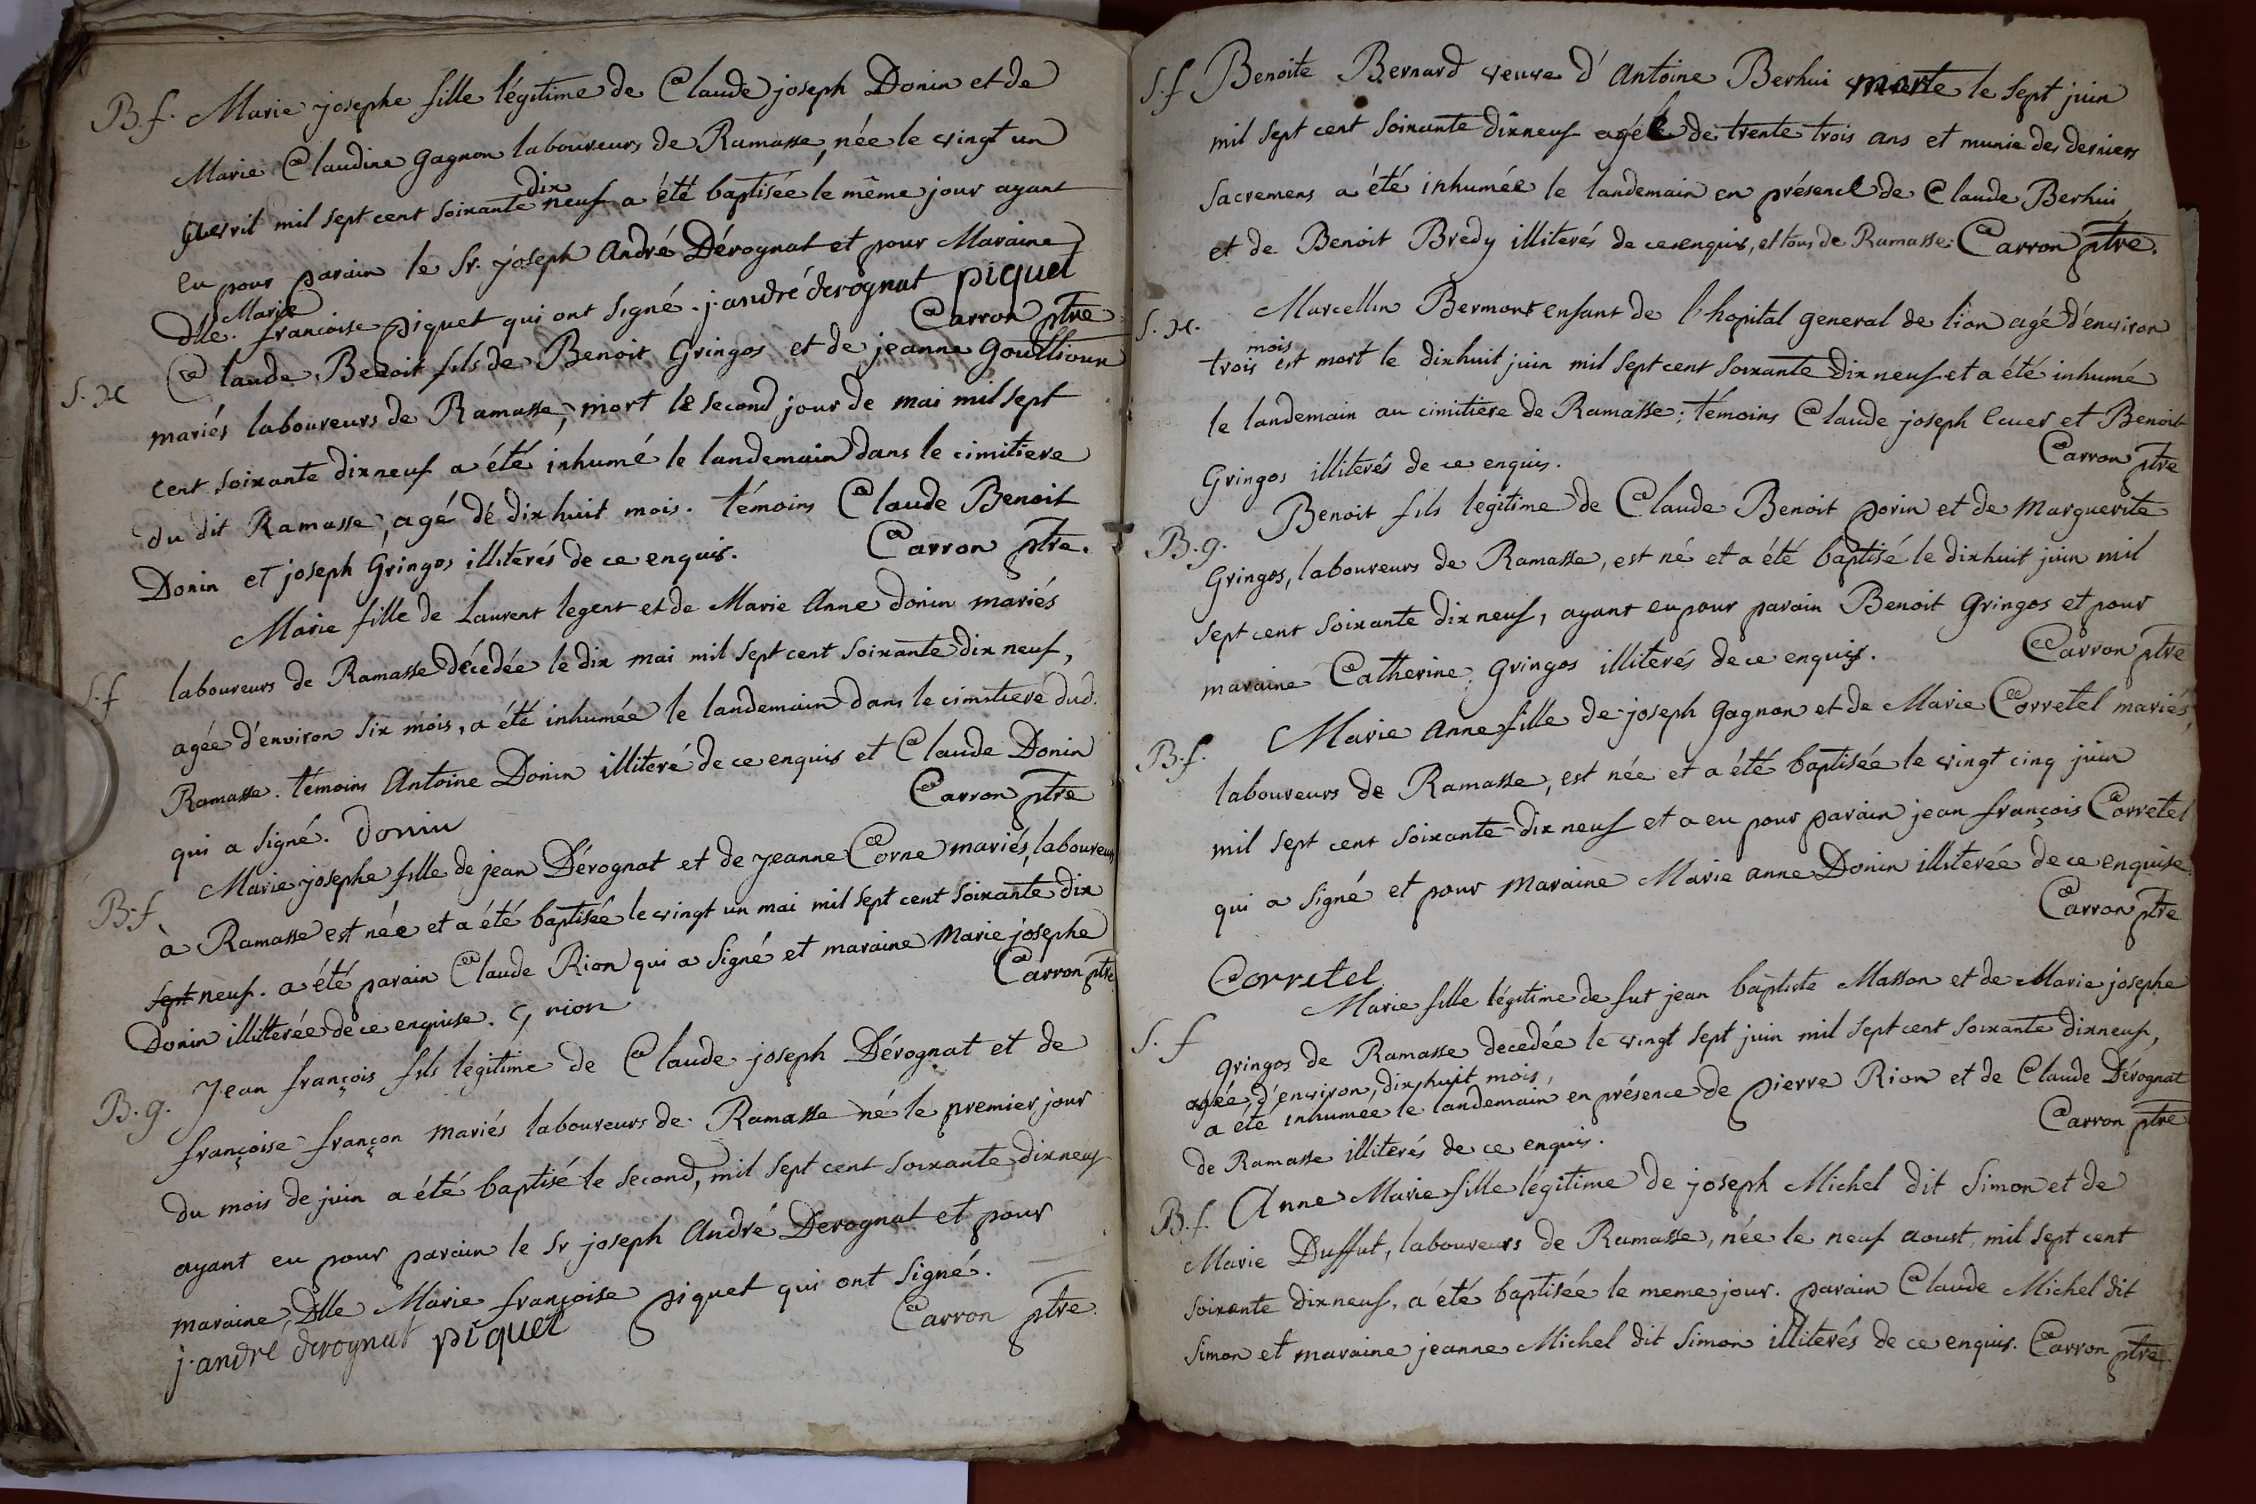 B.f. Marie josephe fille légitime de Claude joseph Donin et de
Marie Claudine Gagnon laboureurs de Ramasse, née le vingt un
avril mil sept cent soixante dix neuf a été baptisée le même jour ayant
eu pour parain le Sr. joseph André Dérognat et pour Maraine
Dlle. Marie françoise piquet qui ont signé. j. andré derognat piquet
Carron ptre
S. x Claude Benoit fils de Benoit Gringos et de jeanne
mariés laboureurs de Ramasse, mort le second jour de mai mil sept
cent soixante dix neuf a été inhumé le landemain dans le cimitiere
du dit Ramasse, agé de dix huit mois. témoins Claude Benoit
Donin et joseph Gringos illiterés de ce enquis. Carron ptre.
Marie fille de Laurent legent et de Marie Anne donin mariés
S.f laboureurs de Ramasse décedée le dix mai mil sept cent soixante dix neuf,
agée d'environ six mois, a été inhumée le landemain dans le cimitiere dud.
Ramasse. témoins Antoine Donin illiteré de ce enquis et Claude Donin
qui a signé. Donin Carron ptre
Marie josephe fille de jean Dérognat et de jeanne Corne mariés, laboureurs
B.f à Ramasse est née et a été baptisée le vingt un mai mil sept cent soixante dix
sept neuf. a été parain Claude Rion qui a signé et maraine Marie josephe
Donin illitterée de ce enquise. C rion Carron ptre
B. g. Jean françois fils légitime de Claude joseph Dérognat et de
françoise françon mariés laboureurs de Ramasse né le premier jour
du mois de juin a été baptisé le second, mil sept cent soixante dix neuf
ayant eu pour parain le Sr joseph André Derognat et pour
maraine Dlle Marie françoise piquet qui ont signé.
j. andré derognat piquet Carron ptre.
S.f Benoite Bernard veuve d'Antoine Berhui morte le sept juin
mil sept cent soixante dix neuf agée de trente trois ans et munie des derniers
sacremens a été inhumée le landemain en présence de Claude Berhui,
et de Benoit Bredy illiterés de ce enquis, et tous de Ramasse. Carron ptre.
S. x. Marcellin Bermont enfant de l'hopital general de lion agé d'environ
trois mois est mort le dix huit juin mil sept cent soixante dix neuf et a été inhumé
le landemain au cimitiere de Ramasse; témoins Claude joseph Cuer et Benoit
Gringos illiterés de ce enquis. Carron ptre
Benoit fils legitime de Claude Benoit porin et de Marguerite
B. g. Gringos, laboureurs de Ramasse, est né et a été baptisé le dix huit juin mil
sept cent soixante dix neuf, ayant eu pour parain Benoit Gringos et pour
maraine Catherine Gringos illiterés de ce enquis. Carron ptre
Marie Anne fille de joseph Gagnon et de Marie Corretel mariés,
B.f. laboureurs de Ramasse, est née et a été baptisée le vingt cinq juin
mil sept cent soixante-dix neuf et a eu pour parain jean françois Corretel
qui a signé et pour Maraine Marie anne Donin illiterée de ce enquise.
Carron ptre
Corretel
Marie fille légitime de fut jean baptiste Masson et de Marie josephe
S. f Gringos de Ramasse decedée le vingt sept juin mil sept cent soixante dix neuf,
agée d'environ dix huit mois,
a été inhumée le landemain en présence de pierre Rion et de Claude Dérognat
de Ramasse illiterés de ce enquis. Carron ptre
B.f. Anne Marie fille légitime de joseph Michel dit Simon et de
Marie Duffut, laboureurs de Ramasse, née le neuf aoust mil sept cent
soixante dix neuf, a été baptisée le meme jour. parain Claude Michel dit
Simon et maraine jeanne Michel dit Simon illiterés de ce enquis. Carron ptre